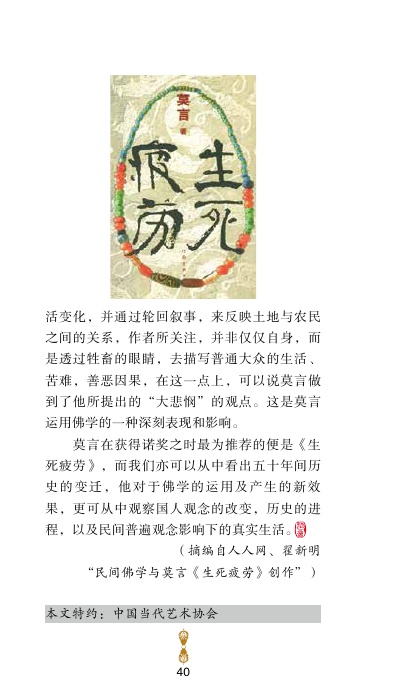 莫言
著
生死
疲劳
活变化，并通过轮回叙事，来反映土地与农民
之间的关系，作者所关注，并非仅仅自身，而
是透过牲畜的眼睛，去描写普通大众的生活、
苦难，善恶因果，在这一点上，可以说莫言做
到了他所提出的“大悲悯”的观点。这是莫言
运用佛学的一种深刻表现和影响。
莫言在获得诺奖之时最为推荐的便是《生
死疲劳》，而我们亦可以从中看出五十年间历
史的变迁，他对于佛学的运用及产生的新效
果，更可从中观察国人观念的改变，历史的进
程，以及民间普遍观念影响下的真实生活。
（摘编自人人网、翟新明
“民间佛学与莫言《生死疲劳》创作”）
本文特约：中国当代艺术协会
40